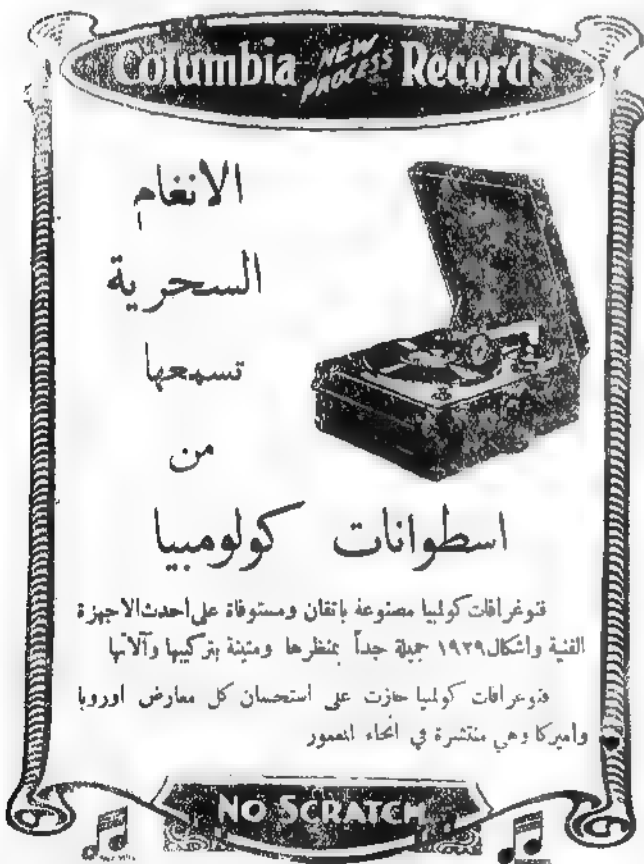 Columbia NEW PROCESS Records
الانغام
السحرية
تسمعها
من
اسطوانات كولومبيا
فنوغرافات كولمبيا مصنوعة باتقان ومستوفاة على احدث الاجهزة
الفنية واشكال ١٩٢٩ جميلة جداً بمنظرها ومتينة بتركيبها وآلاتها
فنوغرافات كولمبيا حازت على استحسان كل معارض اوروبا
واميركا وهي منتشرة في انحاء المعمور
NO SCRATCH